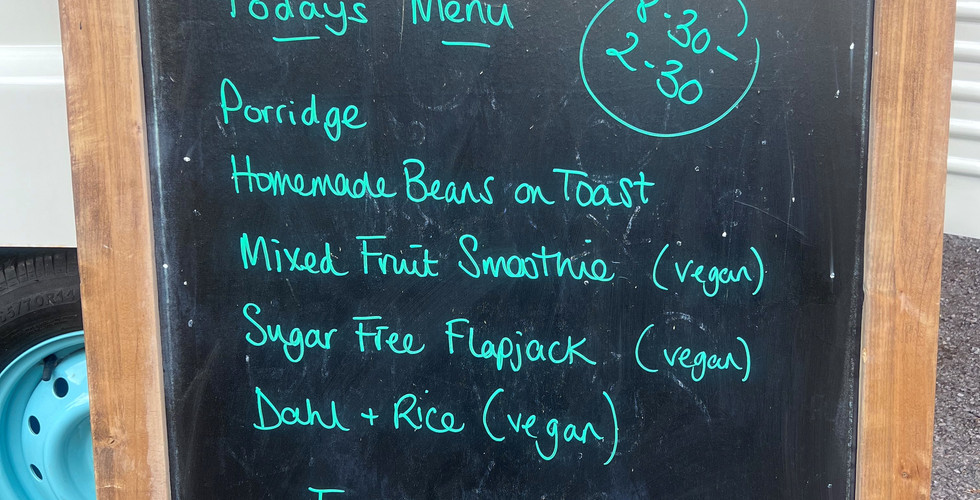 Todays Menu
8-30-
2-30
Porridge
Homemade Beans on Toast
Mixed Fruit Smoothie (vegan)
Sugar Free Flapjack (vegan)
Dahl + Rice (vegan)